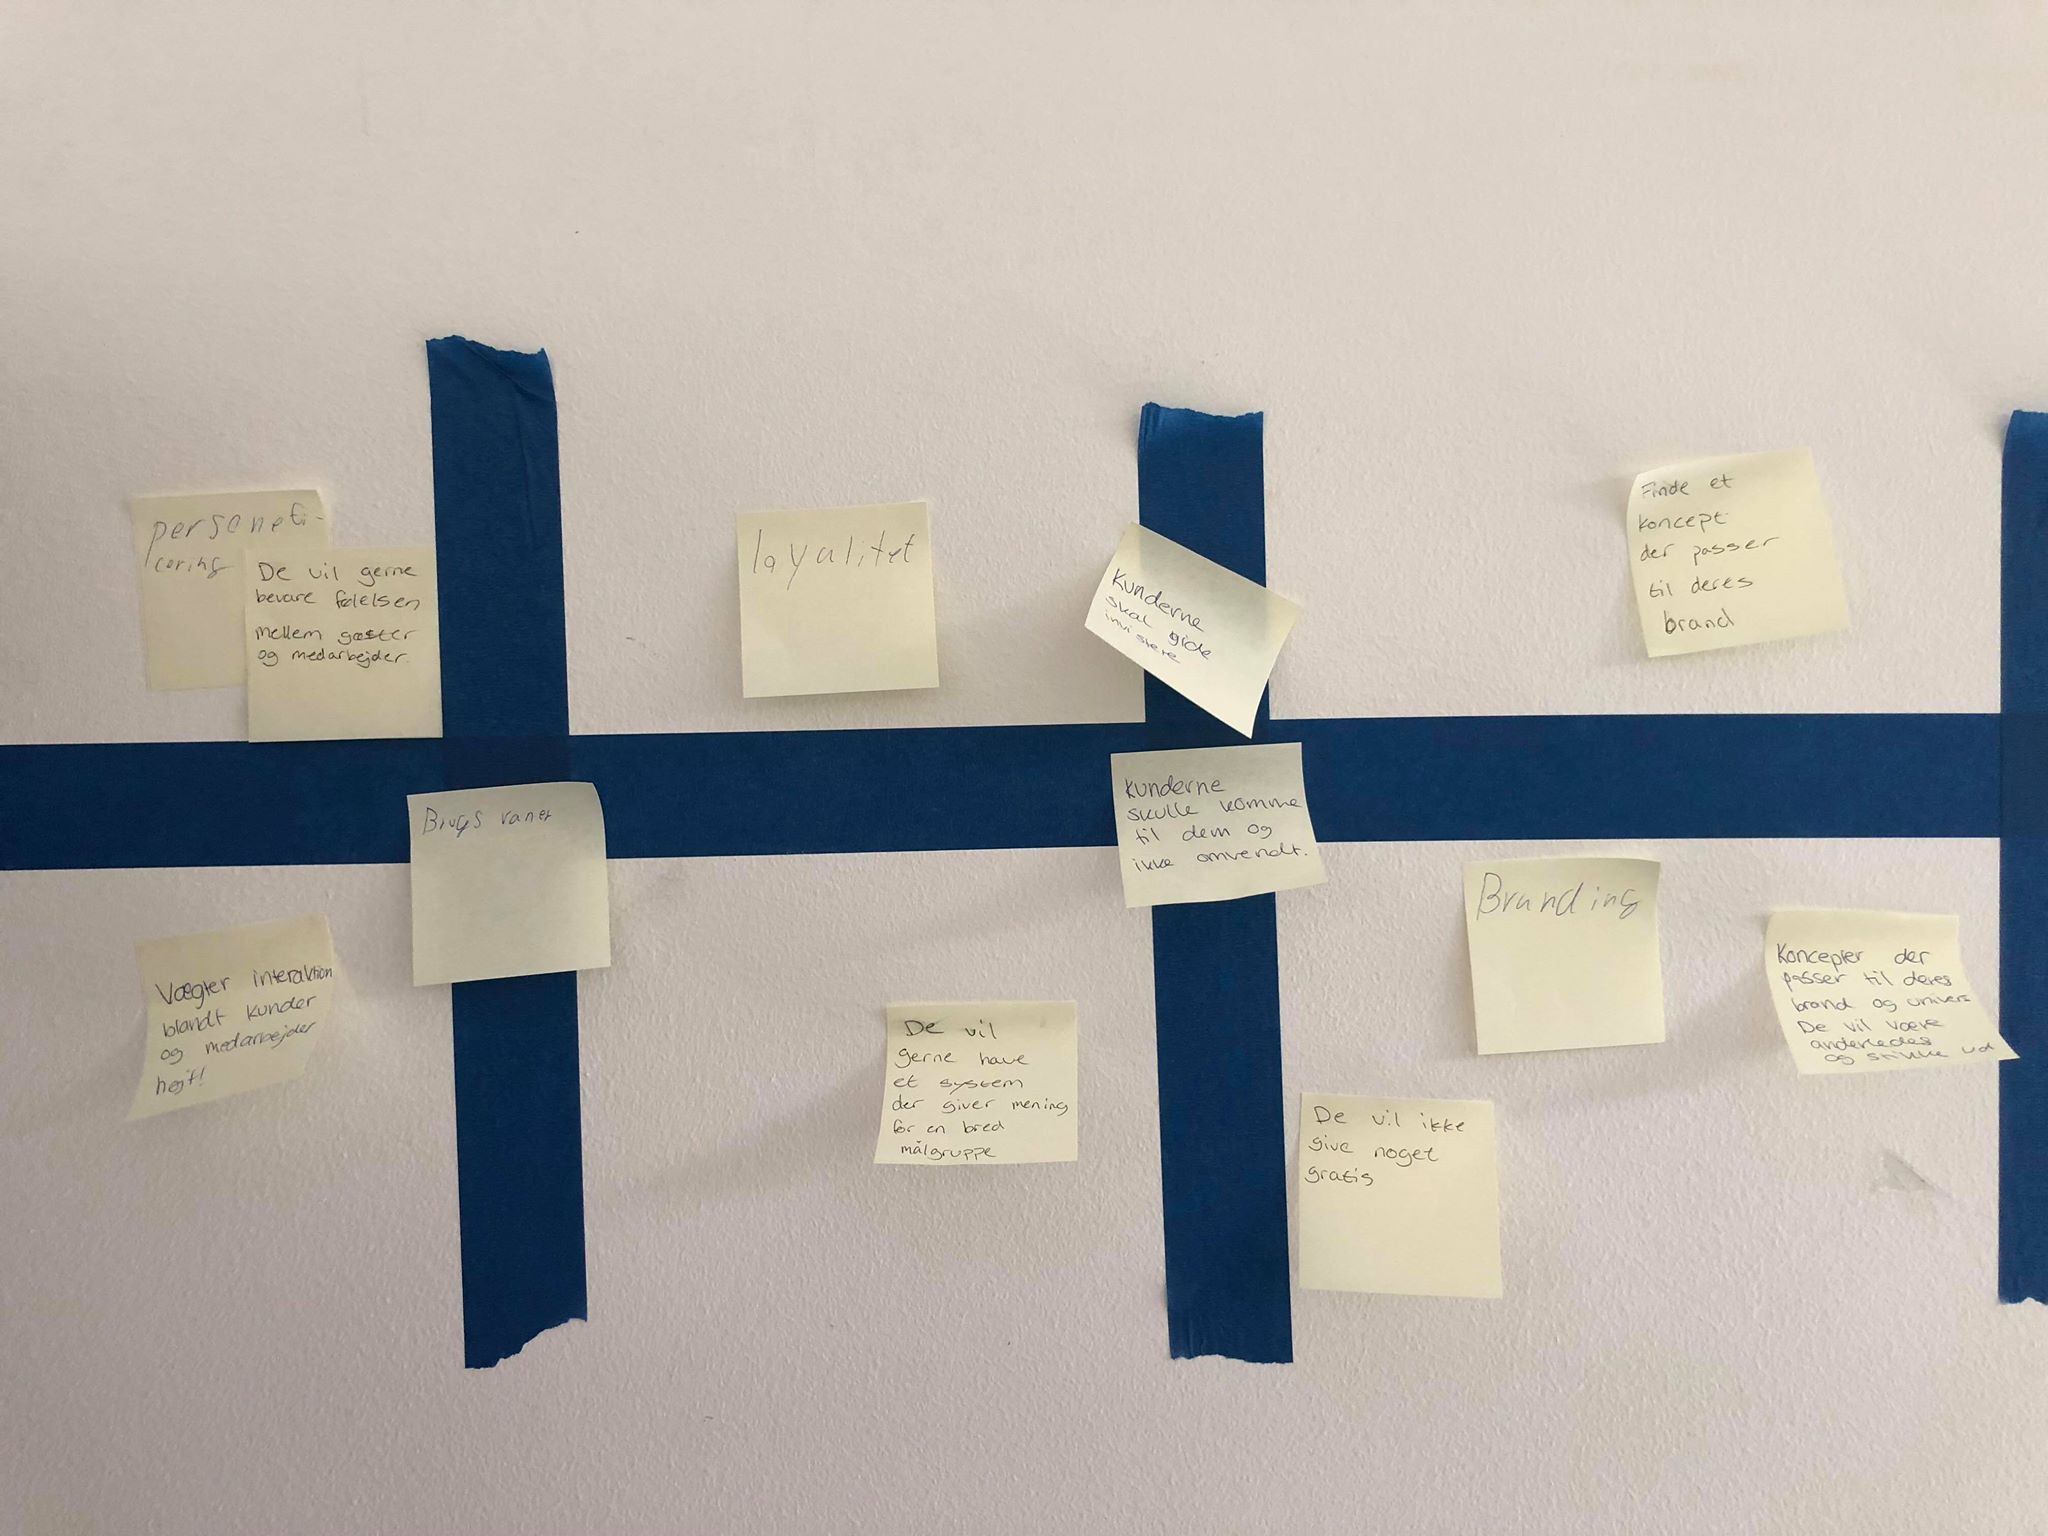 personefi-
cering
De vil gerne
bevare følelsen
mellem gæster
og medarbejder.
loyalitet
Kunderne
skal gide
invistere
Finde et
koncept
der passer
til deres
brand
Brugs vaner
Kunderne
skulle komme
til dem og
ikke omvendt.
Branding
Vægter interaktion
blandt kunder
og medarbejder
højt!
De vil
gerne have
et system
der giver mening
for en bred
målgruppe
Koncepter der
passer til deres
brand og univers
De vil være
anderledes
og stikke ud
De vil ikke
give noget
gratis